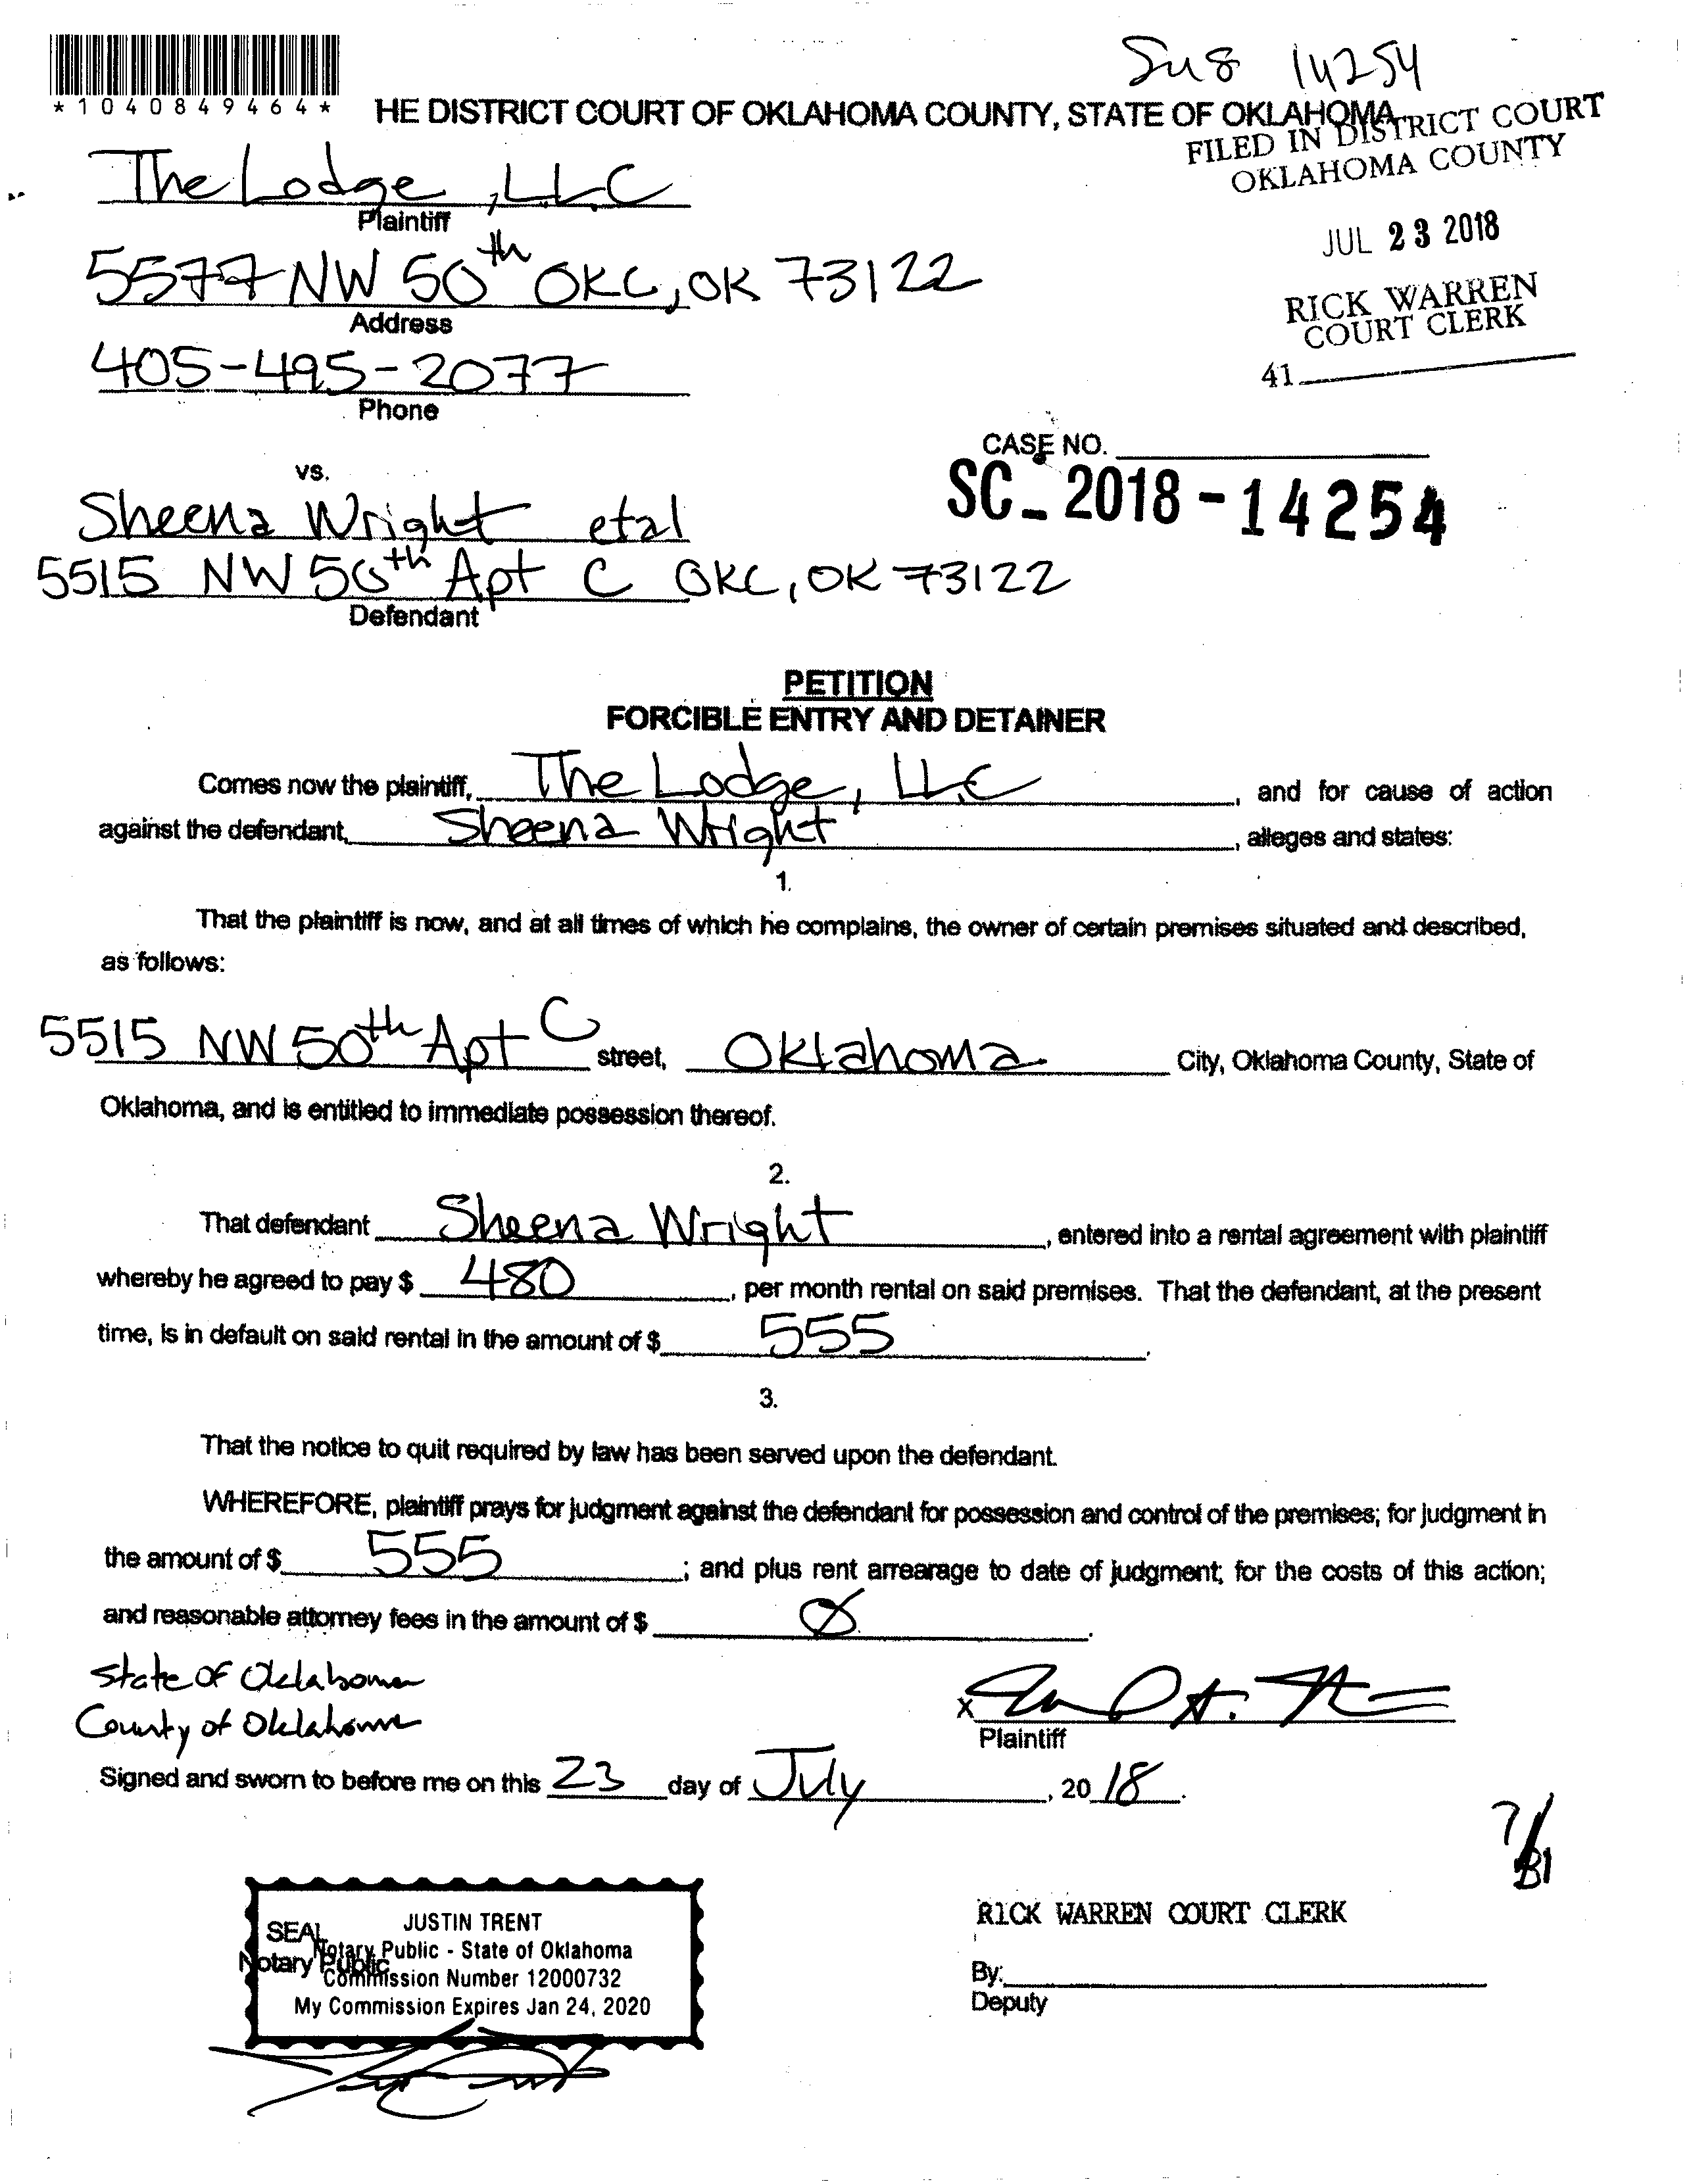 Su8 14254
*1040849464*
HE DISTRICT COURT OF OKLAHOMA COUNTY, STATE OF OKLAHOMA
FILED IN DISTRICT COURT
OKLAHOMA COUNTY
The Lodge, LLC
Plaintiff
JUL 23 2018
5577 NW 50th OKC, OK 73122
Address
RICK WARREN
COURT CLERK
405-495-2077
Phone
41
CASE NO.
SC-2018-14254
vs.
Sheena Wright etal
5515 NW 50th Apt C OKC, OK 73122
Defendant
PETITION
FORCIBLE ENTRY AND DETAINER
Comes now the plaintiff, The Lodge, LLC, and for cause of action
against the defendant, Sheena Wright, alleges and states:
1.
That the plaintiff is now, and at all times of which he complains, the owner of certain premises situated and described,
as follows:
5515 NW 50th Apt C street, Oklahoma City, Oklahoma County, State of
Oklahoma, and is entitled to immediate possession thereof.
2.
That defendant Sheena Wright, entered into a rental agreement with plaintiff
whereby he agreed to pay $ 480, per month rental on said premises. That the defendant, at the present
time, is in default on said rental in the amount of $ 555.
3.
That the notice to quit required by law has been served upon the defendant.
WHEREFORE, plaintiff prays for judgment against the defendant for possession and control of the premises; for judgment in
the amount of $ 555; and plus rent arrearage to date of judgment; for the costs of this action;
and reasonable attorney fees in the amount of $ Ø.
State of Oklahoma
County of Oklahoma
X
Plaintiff
Signed and sworn to before me on this 23 day of July, 2018.
7/31
SEAL
Notary Public
JUSTIN TRENT
Notary Public - State of Oklahoma
Commission Number 12000732
My Commission Expires Jan 24, 2020
RICK WARREN COURT CLERK
By:
Deputy